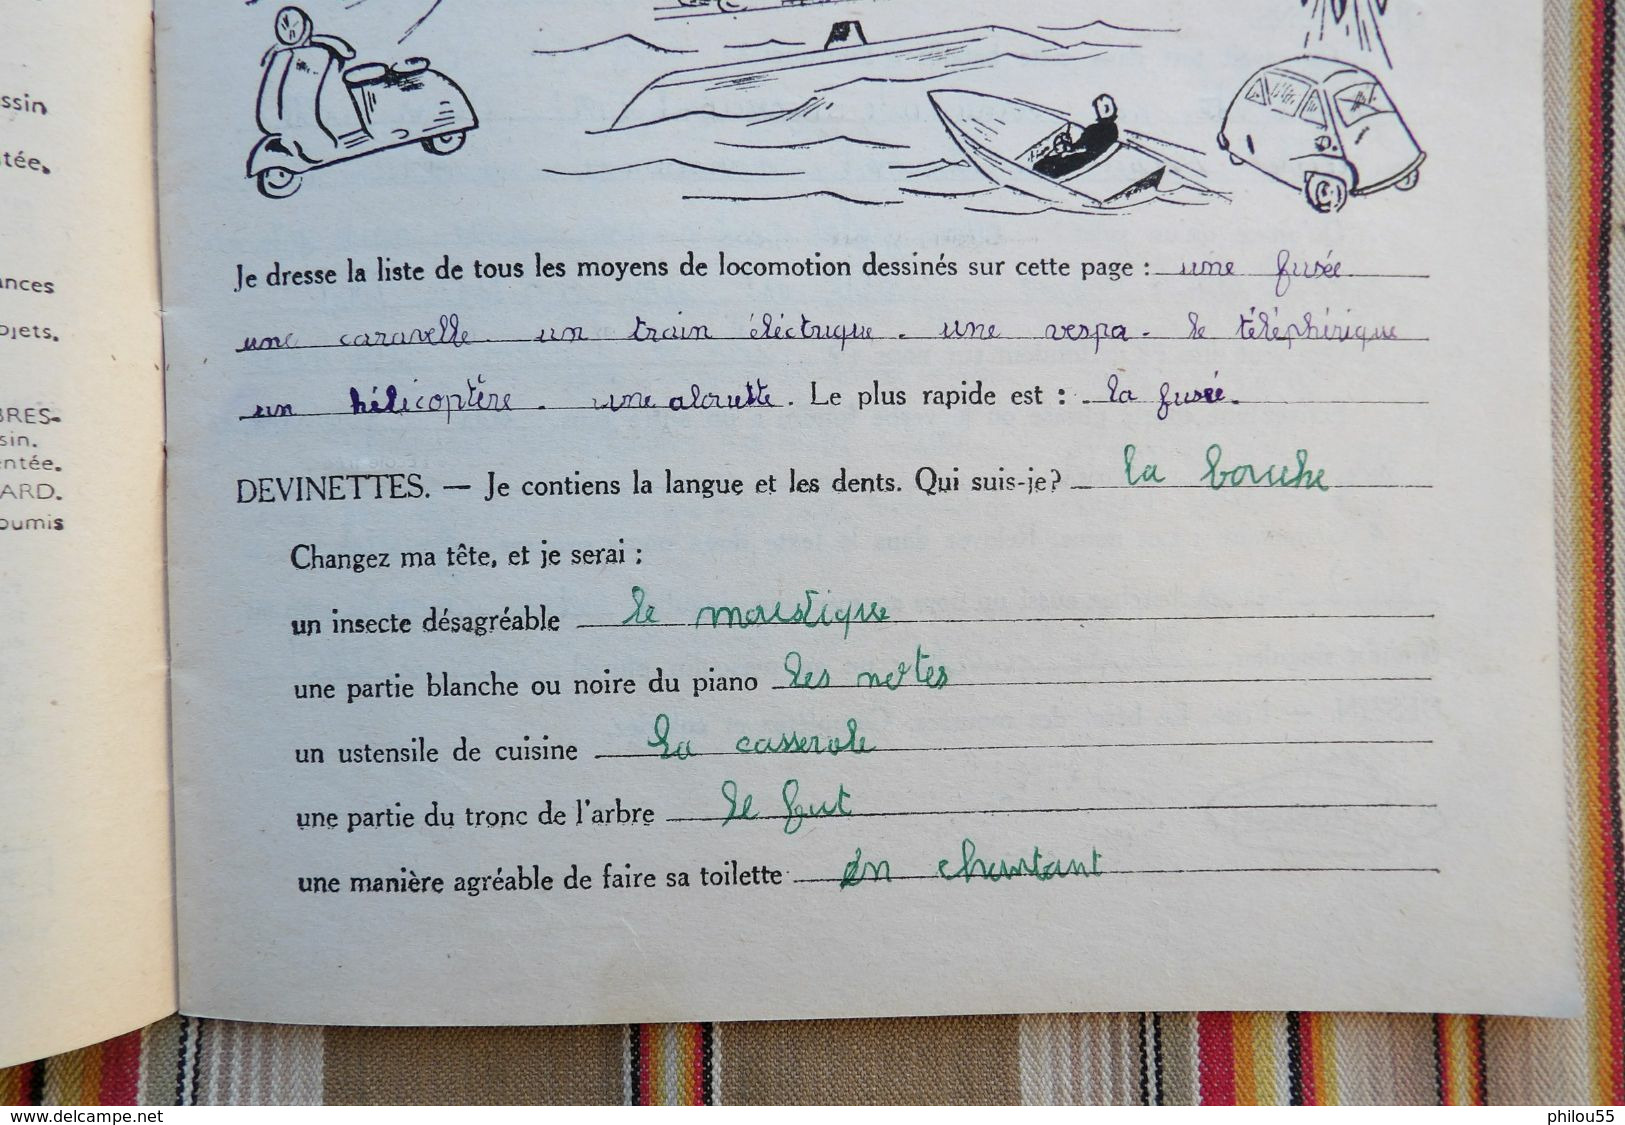 ssin
tée.
ances
bjets.
BRES-
sin.
entée.
ARD.
oumis
Je dresse la liste de tous les moyens de locomotion dessinés sur cette page : une fusée
une caravelle. un train éléctrique. une vespa. le téléphirique
un hélicoptère. une alouette. Le plus rapide est : la fusée.
DEVINETTES. — Je contiens la langue et les dents. Qui suis-je? la bouche
Changez ma tête, et je serai :
un insecte désagréable le moustique
une partie blanche ou noire du piano les notes
un ustensile de cuisine la casserole
une partie du tronc de l'arbre le fut
une manière agréable de faire sa toilette en chantant
www.delcampe.net
philou55